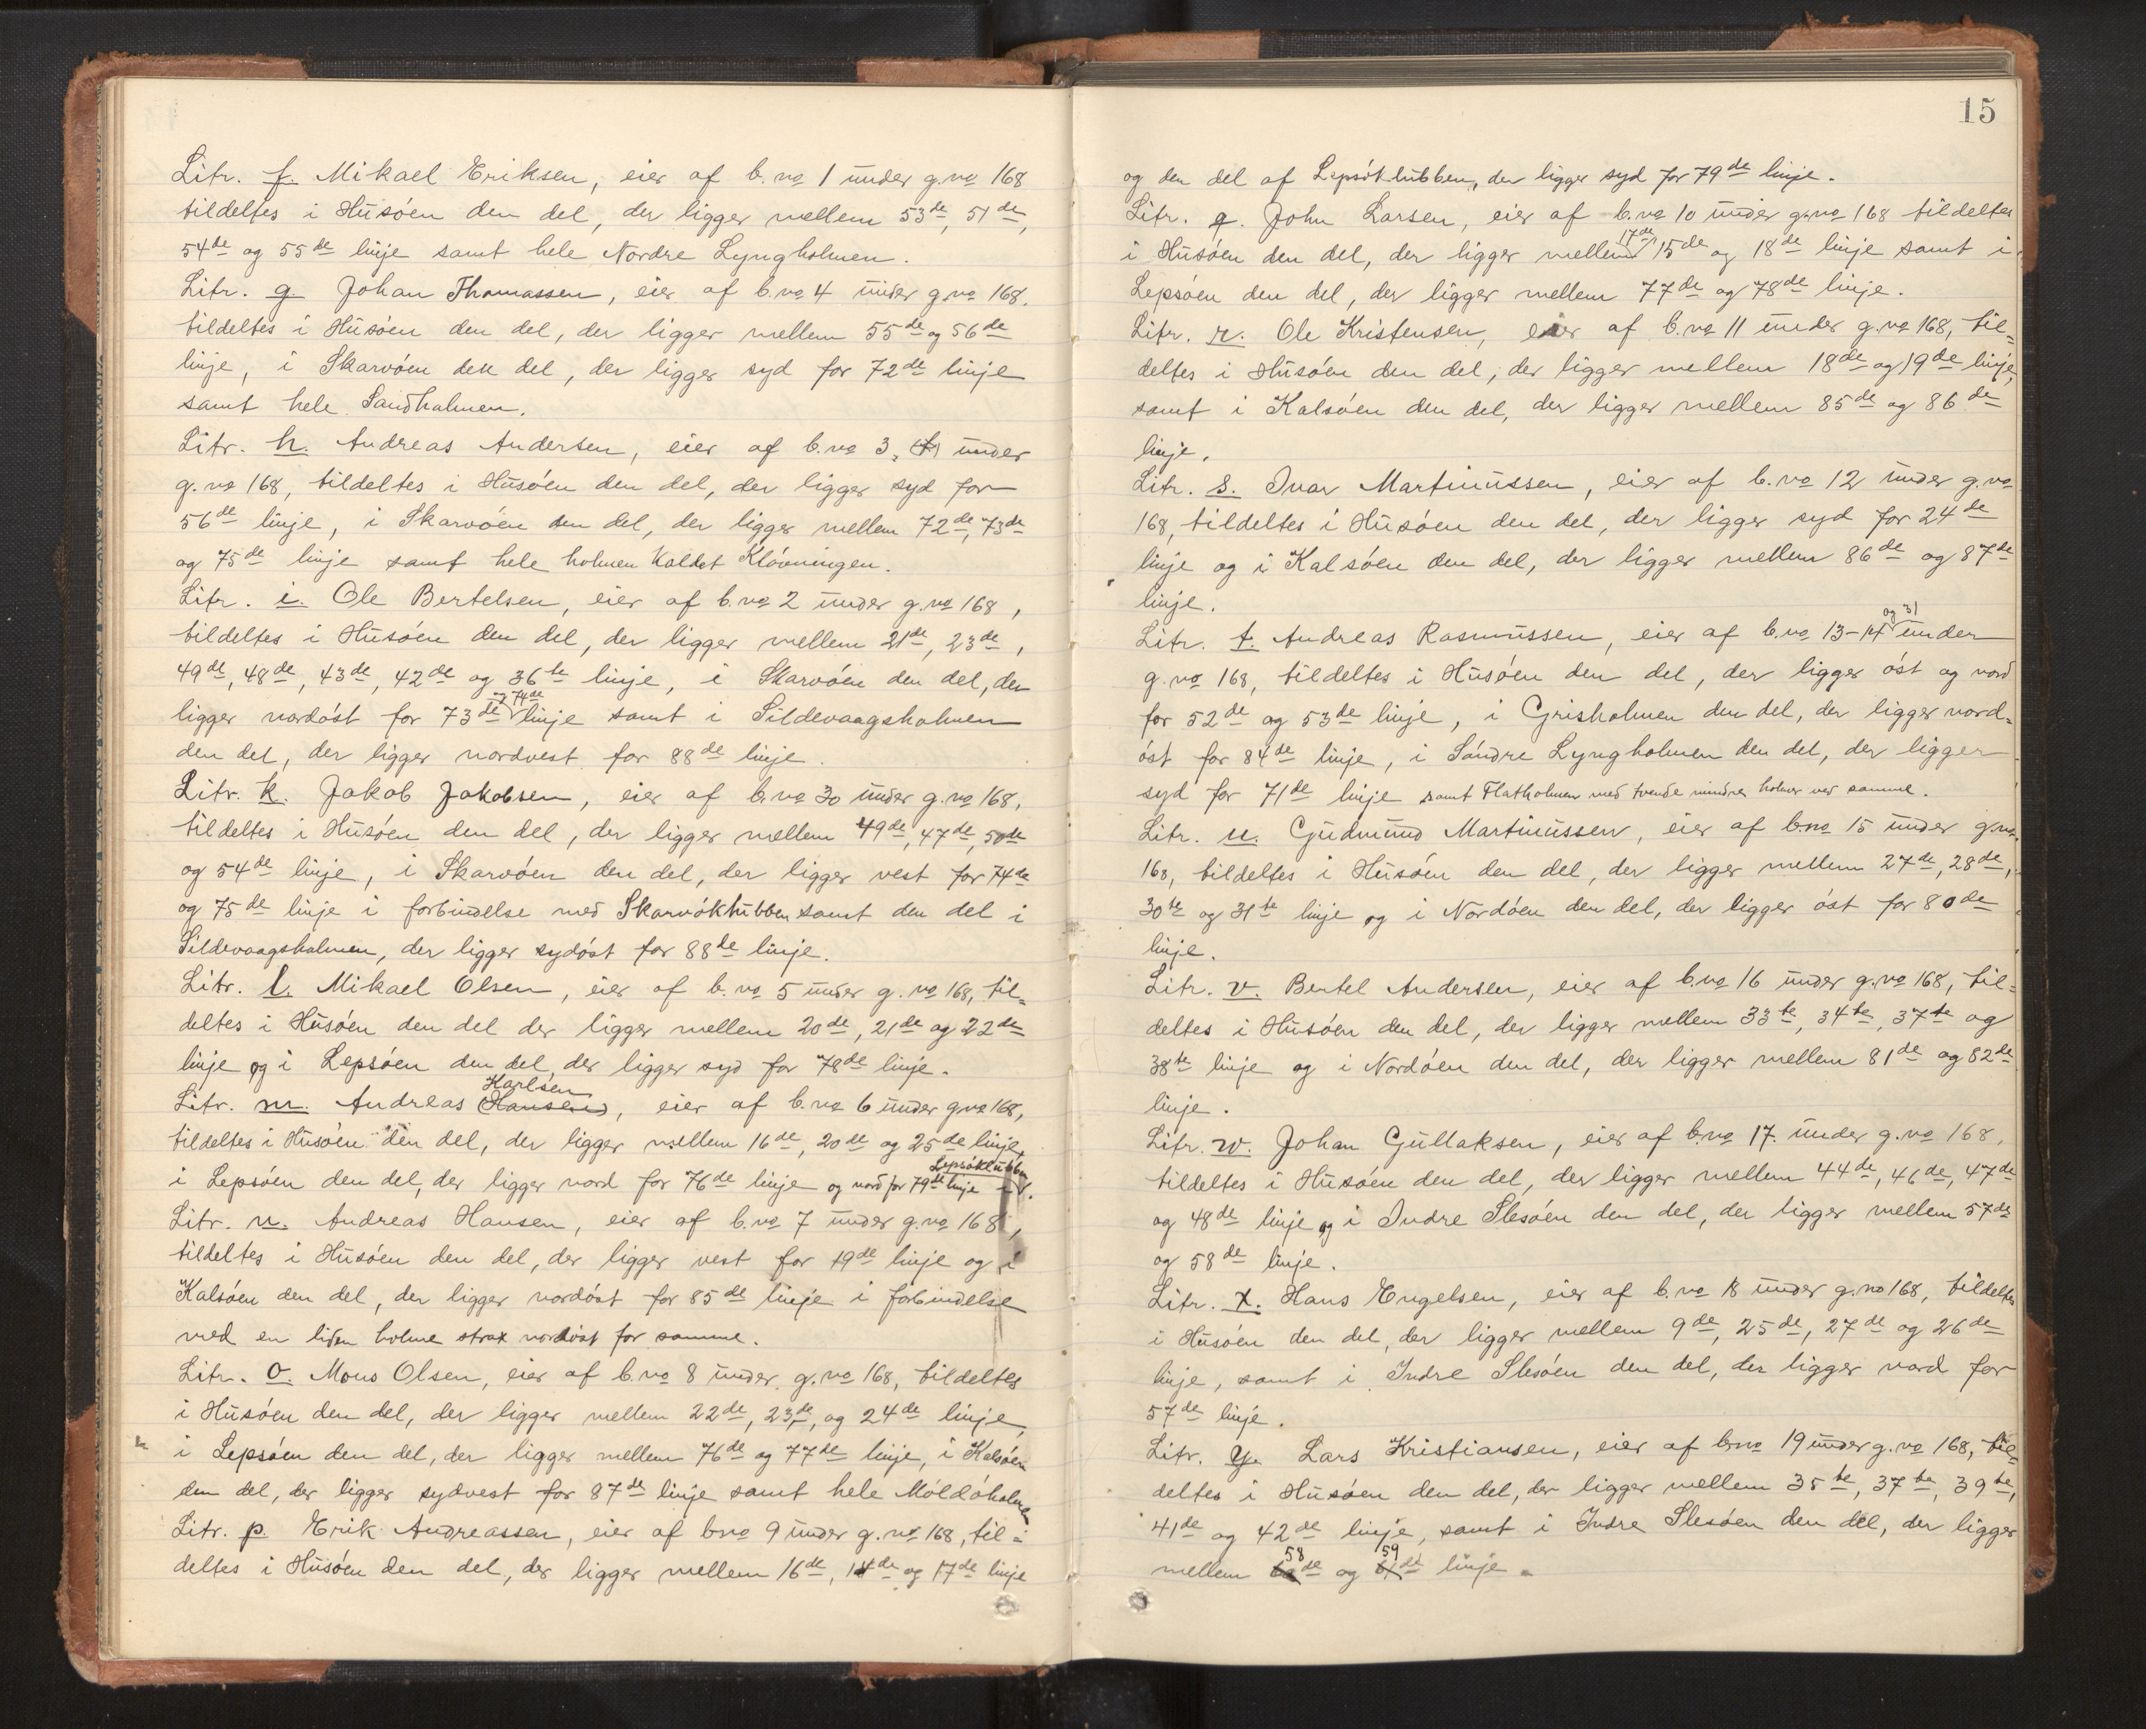 Litr. f. Mikael Eriksen, eier af b.no 1 under g.no 168
tildeltes i Husöen den del, der ligger mellem 53de, 51de,
54de og 55de linje samt hele Nordre Lyngholmen.
Litr. g. Johan Thomassen, eier af b.no 4 under g.no 168.
tildeltes i Husöen den del, der ligger mellem 55de og 56de
linje, i Skarvöen den del, der ligger syd for 72de linje
samt hele Sandholmen.
Litr. h. Andreas Andersen, eier af b.no 3, under
g.no 168, tildeltes i Husöen den del, der ligger syd for
56de linje, i Skarvöen den del, der ligger mellem 72de, 73de
og 75de linje samt hele holmen kaldet Klövningen.
Litr. i. Ole Bertelsen, eier af b.no 2 under g.no 168,
tildeltes i Husöen den del, der ligger mellem 21de, 23de,
49de, 48de, 43de, 42de og 36te linje, i Skarvöen den del, der
ligger nordöst for 73de og 74de linje samt i Sildevaagsholmen
den del, der ligger nordvest for 88de linje.
Litr. k. Jakob Jakobsen, eier af b.no 30 under g.no 168,
tildeltes i Husöen den del, der ligger mellem 49de, 47de, 50de
og 54de linje, i Skarvöen den del, der ligger vest for 74de
og 75de linje i forbindelse med Skarvöklubben samt den del i
Sildevaagsholmen, der ligger sydöst for 88de linje.
Litr. l. Mikael Olsen, eier af b.no 5 under g.no 168, til-
deltes i Husöen den del der ligger mellem 20de, 21de og 22de
linje og i Lepsöen den del, der ligger syd for 78de linje.
Karlsen
Litr. m. Andreas (Hansen), eier af b.no 6 under g.no 168,
tildeltes i Husöen den del, der ligger mellem 16de, 20de og 25de linje,
Lepsöklubben
i Lepsöen den del, der ligger nord for 76de linje og nord for 79de linje i
Litr. n. Andreas Hansen, eier af b.no 7 under g.no 168,
tildeltes i Husöen den del, der ligger vest for 19de linje og i
Kalsöen den del, der ligger nordöst for 85de linje i forbindelse
med en liden holme strax nordöst for samme.
Litr. o. Mons Olsen, eier af b.no 8 under g.no 168, tildeltes
i Husöen den del, der ligger mellem 22de, 23de, og 24de linje,
i Lepsöen den del, der ligger mellem 76de og 77de linje, i Kalsöen
den del, der ligger sydvest for 87de linje samt hele Möldöholmen
Litr. p. Erik Andreassen, eier af b.no 9 under g.no 168, til-
deltes i Husöen den del, der ligger mellem 16de, 14de og 17de linje
15
og den del af Lepsöklubben, der ligger syd for 79de linje.
Litr. q. John Larsen, eier af b.no 10 under g.no 168 tildeltes
i Husöen den del, der ligger mellem 17de 15de og 18de linje samt i
Lepsöen den del, der ligger mellem 77de og 78de linje.
Litr. r. Ole Kristensen, eier af b.no 11 under g.no 168, til-
deltes i Husöen den del, der ligger mellem 18de og 19de linje,
samt i Kalsöen den del, der ligger mellem 85de og 86de
linje.
Litr. s. Ivar Martinussen, eier af b.no 12 under g.no
168, tildeltes i Husöen den del, der ligger syd for 24de
linje og i Kalsöen den del, der ligger mellem 86de og 87de
linje.
Litr. t. Andreas Rasmussen, eier af b.no 13-14 og 31 under
g.no 168, tildeltes i Husöen den del, der ligger öst og nord
for 52de og 53de linje, i Grisholmen den del, der ligger nord-
öst for 84de linje, i Söndre Lyngholmen den del, der ligger
syd for 71de linje samt Flatholmen med tvende mindre holmer ved samme.
Litr. u. Gudmund Martinussen, eier af b.no 15 under g.no
168, tildeltes i Husöen den del, der ligger mellem 27de, 28de,
30te og 31te linje og i Nordöen den del, der ligger öst for 80de
linje.
Litr. v. Bertel Andersen, eier af b.no 16 under g.no 168, til-
deltes i Husöen den del, der ligger mellem 33te, 34te, 37te og
38te linje og i Nordöen den del, der ligger mellem 81de og 82de
linje.
Litr. w. Johan Gullaksen, eier af b.no 17. under g.no 168,
tildeltes i Husöen den del, der ligger mellem 44de, 46de, 47de
og 48de linje og i Indre Slesöen den del, der ligger mellem 57de
og 58de linje.
Litr. x. Hans Engelsen, eier af b.no 18 under g.no 168, tildeltes
i Husöen den del, der ligger mellem 9de, 25de, 27de og 26de
linje, samt i Indre Slesöen den del, der ligger nord for
57de linje.
Litr. y. Lars Kristiansen, eier af b.no 19 under g.no 168, til-
deltes i Husöen den del, der ligger mellem 35te, 37te, 39te,
41de og 42de linje, samt i Indre Slesöen den del, der ligger
mellem 58de og 59de linje.